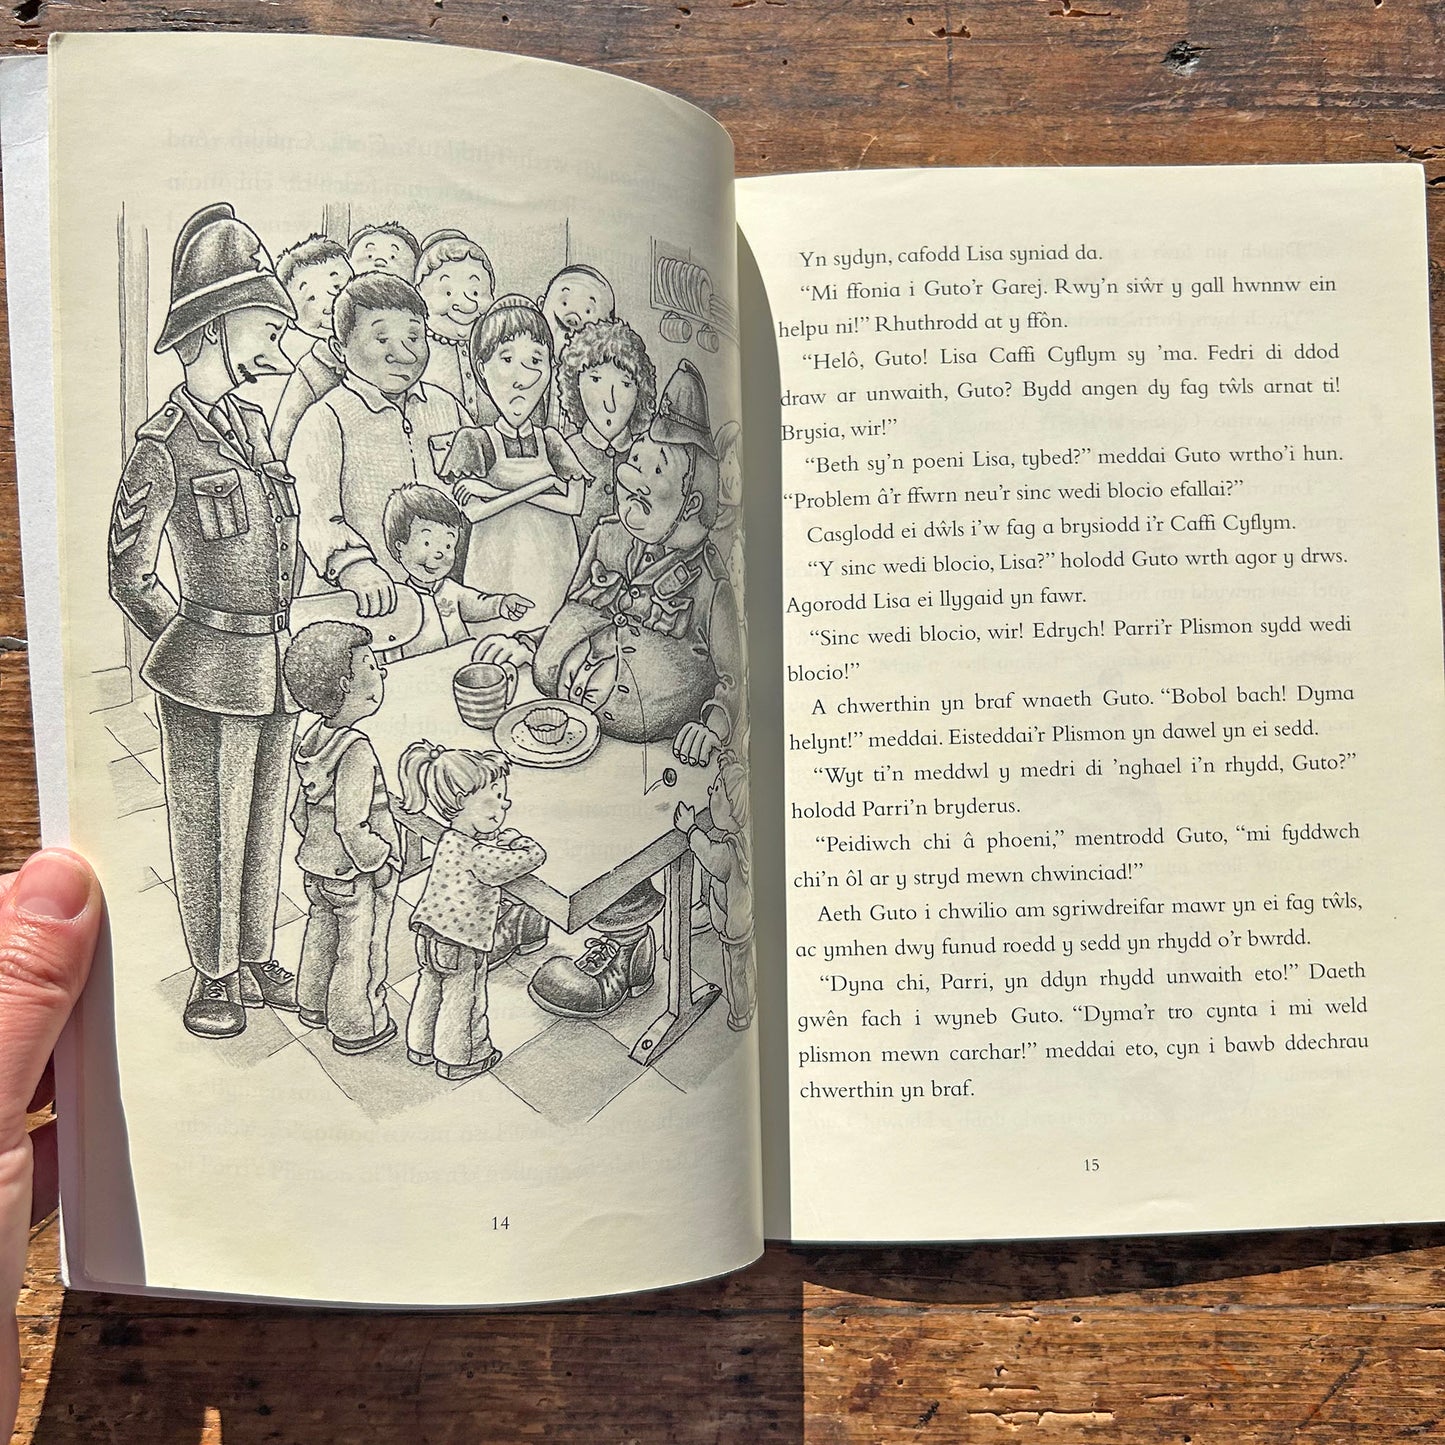 14
Yn sydyn, cafodd Lisa syniad da.
“Mi ffonia i Guto’r Garej. Rwy’n siŵr y gall hwnnw ein
helpu ni!” Rhuthrodd at y ffôn.
“Helô, Guto! Lisa Caffi Cyflym sy ’ma. Fedri di ddod
draw ar unwaith, Guto? Bydd angen dy fag tŵls arnat ti!
Brysia, wir!”
“Beth sy’n poeni Lisa, tybed?” meddai Guto wrtho’i hun.
“Problem â’r ffwrn neu’r sinc wedi blocio efallai?”
Casglodd ei dŵls i’w fag a brysiodd i’r Caffi Cyflym.
“Y sinc wedi blocio, Lisa?” holodd Guto wrth agor y drws.
Agorodd Lisa ei llygaid yn fawr.
“Sinc wedi blocio, wir! Edrych! Parri’r Plismon sydd wedi
blocio!”
A chwerthin yn braf wnaeth Guto. “Bobol bach! Dyma
helynt!” meddai. Eisteddai’r Plismon yn dawel yn ei sedd.
“Wyt ti’n meddwl y medri di ’nghael i’n rhydd, Guto?”
holodd Parri’n bryderus.
“Peidiwch chi â phoeni,” mentrodd Guto, “mi fyddwch
chi’n ôl ar y stryd mewn chwinciad!”
Aeth Guto i chwilio am sgriwdreifar mawr yn ei fag tŵls,
ac ymhen dwy funud roedd y sedd yn rhydd o’r bwrdd.
“Dyna chi, Parri, yn ddyn rhydd unwaith eto!” Daeth
gwên fach i wyneb Guto. “Dyma’r tro cynta i mi weld
plismon mewn carchar!” meddai eto, cyn i bawb ddechrau
chwerthin yn braf.
15